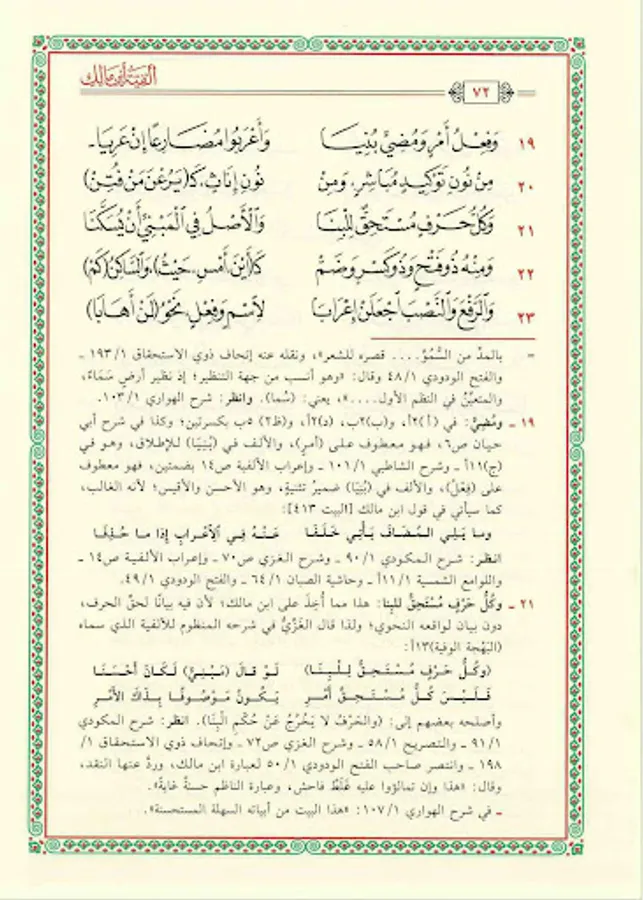 ألفية ابن مالك
٧٢
١٩ وَفِعْلُ أَمْرٍ وَمُضِيٍّ بُنِيَا وَأَعْرَبُوا مُضَارِعًا إِنْ عَرِيَا ـ
٢٠ مِنْ نُونِ تَوْكِيدٍ مُبَاشِرٍ، وَمِنْ نُونِ إِنَاثٍ، كَـ(يَرُعْنَ مَنْ فُتِنْ)
٢١ وَكُلُّ حَرْفٍ مُسْتَحِقٌّ لِلْبِنَا وَالْأَصْلُ فِي الْمَبْنِيِّ أَنْ يُسَكَّنَا
٢٢ وَمِنْهُ ذُو فَتْحٍ وَذُو كَسْرٍ وَضَمْ كَـ(أَيْنَ، أَمْسِ، حَيْثُ)، وَالسَّاكِنُ (كَمْ)
٢٣ وَالرَّفْعَ وَالنَّصْبَ اجْعَلَنْ إِعْرَابَا لِاسْمٍ وَفِعْلٍ، نَحْوُ (لَنْ أَهَابَا)
= بالمدِّ من السُّمُوِّ.... قصره للشعر»، ونقله عنه إتحاف ذوي الاستحقاق ١/ ١٩٣ ـ
والفتح الودودي ١/ ٤٨ وقال: «وهو أنسب من جهة التنظير؛ إذ نظير أرضٍ سَمَاءٌ،
والمتعيِّن في النظم الأول....»، يعني: (سُما). وانظر: شرح الهواري ١/ ١٠٣.
١٩ ـ ومُضِيٍّ: في (أ)٢أ، و(ب)٢ب، (د)٢أ، و(ظ٢) ٥ب بكسرتين؛ وكذا في شرح أبي
حيان ص٦، فهو معطوف على (أمرٍ)، والألف في (بُنِيَا) للإطلاق، وهو في
(ج)١١أ ـ وشرح الشاطبي ١/ ١٠١ ـ وإعراب الألفية ص١٤ بضمتين، فهو معطوف
على (فِعْلُ)، والألف في (بُنِيَا) ضميرُ تثنيةٍ، وهو الأحسن والأقيس؛ لأنه الغالب،
كما سيأتي في قول ابن مالك [البيت ٤١٣]:
وما يَلِي المُضَافَ يَأْتِي خَلَفَا عَنْهُ فِي الِاعْرَابِ إِذَا ما حُذِفَا
انظر: شرح المكودي ١/ ٩٠ ـ وشرح الغزي ص٧٠ ـ وإعراب الألفية ص١٤ ـ
واللوامع الشمسية ١/ ١١أ ـ وحاشية الصبان ١/ ٦٤ ـ والفتح الودودي ١/ ٤٩.
٢١ ـ وكُلُّ حَرْفٍ مُسْتَحِقٌّ لِلبِنا: هذا مما أُخِذَ على ابن مالك؛ لأن فيه بيانًا لحقِّ الحرف،
دون بيان لواقعه النحوي؛ ولذا قال الغَزِّيُّ في شرحه المنظوم للألفية الذي سماه
(البَهْجة الوفية)١٣أ:
(وكُلُّ حَرْفٍ مُسْتَحِقٌّ لِلْبِنَا) لَوْ قالَ (مَبْنِيٌّ) لَكَانَ أَحْسَنَا
فَلَيْسَ كُلُّ مُسْتَحِقٍّ أَمْرِ يَكُونُ مَوْصُوفًا بِذَاكَ الأَمْرِ
وأصلحه بعضهم إلى: (والحَرْفُ لا يَخْرُجُ عَنْ حُكْمِ الْبِنَا). انظر: شرح المكودي
١/ ٩١ ـ والتصريح ١/ ٥٨ ـ وشرح الغزي ص٧٢ ـ وإتحاف ذوي الاستحقاق ١/
١٩٨ ـ وانتصر صاحب الفتح الودودي ١/ ٥٠ لعبارة ابن مالك، وردَّ عنها النقد،
وقال: «هذا وإن تمالؤوا عليه غَلَطٌ فاحش، وعبارة الناظم حسنةٌ غايةً».
ـ في شرح الهواري ١/ ١٠٧: «هذا البيت من أبياته السهلة المستحسنة».